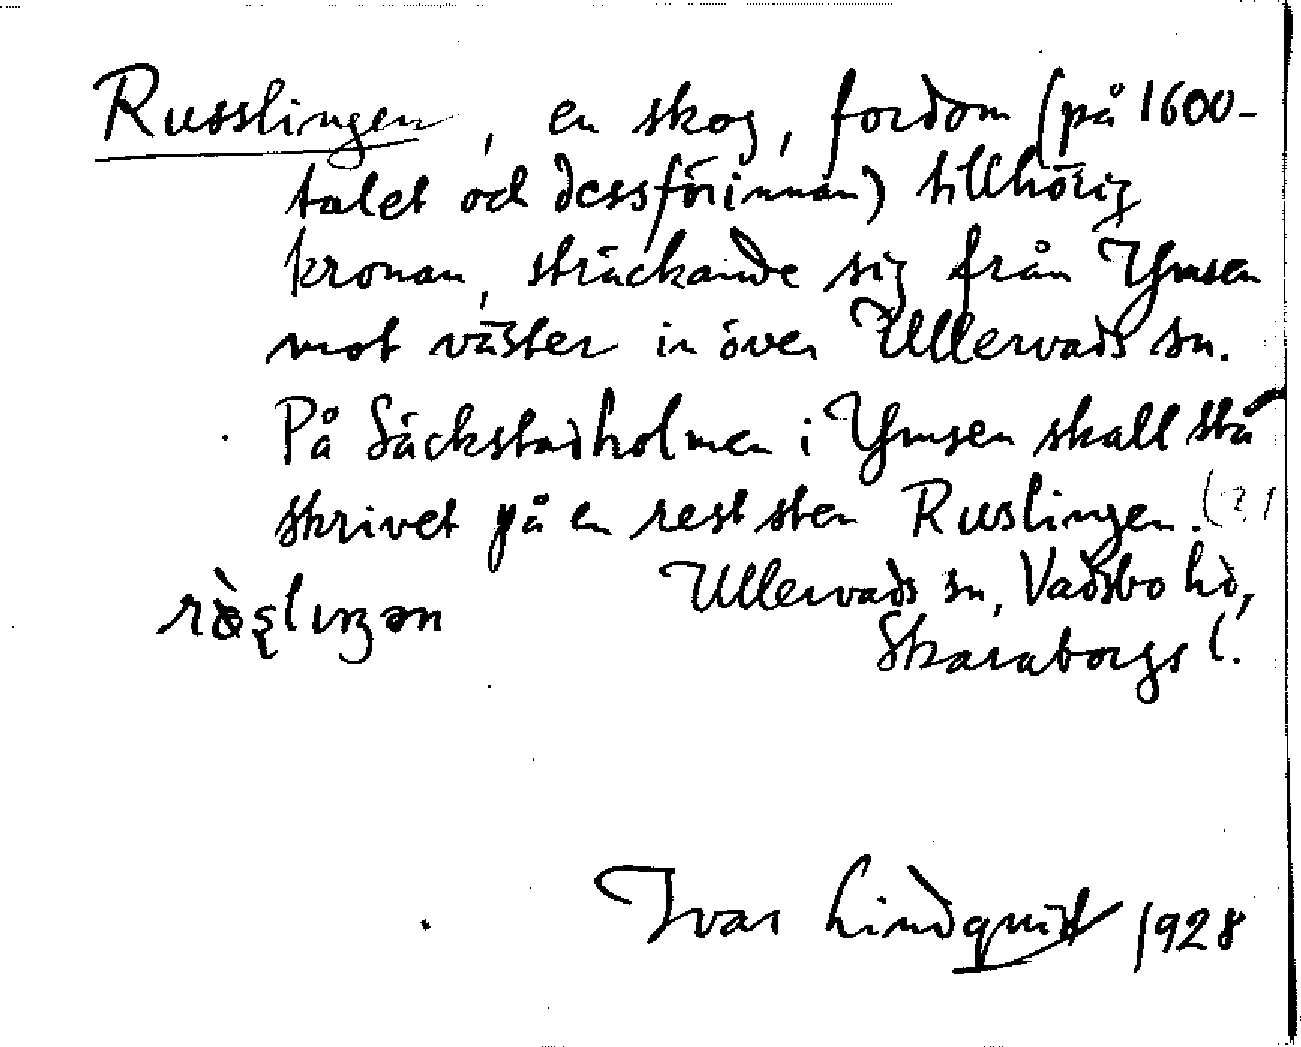 Russlingen, en skog, fordom (på 1600-
talet och dessförinnan) tillhörig
kronan, sträckande sig från Ymsen
mot väster in över Ullervads sn.
På Säckstadholmen i Ymsen skall stå
skrivet på en rest sten Ruslingen. (?)
Ullervads sn, Vadsbo hd,
Skaraborgs l.
Ivar Lindquist 1928